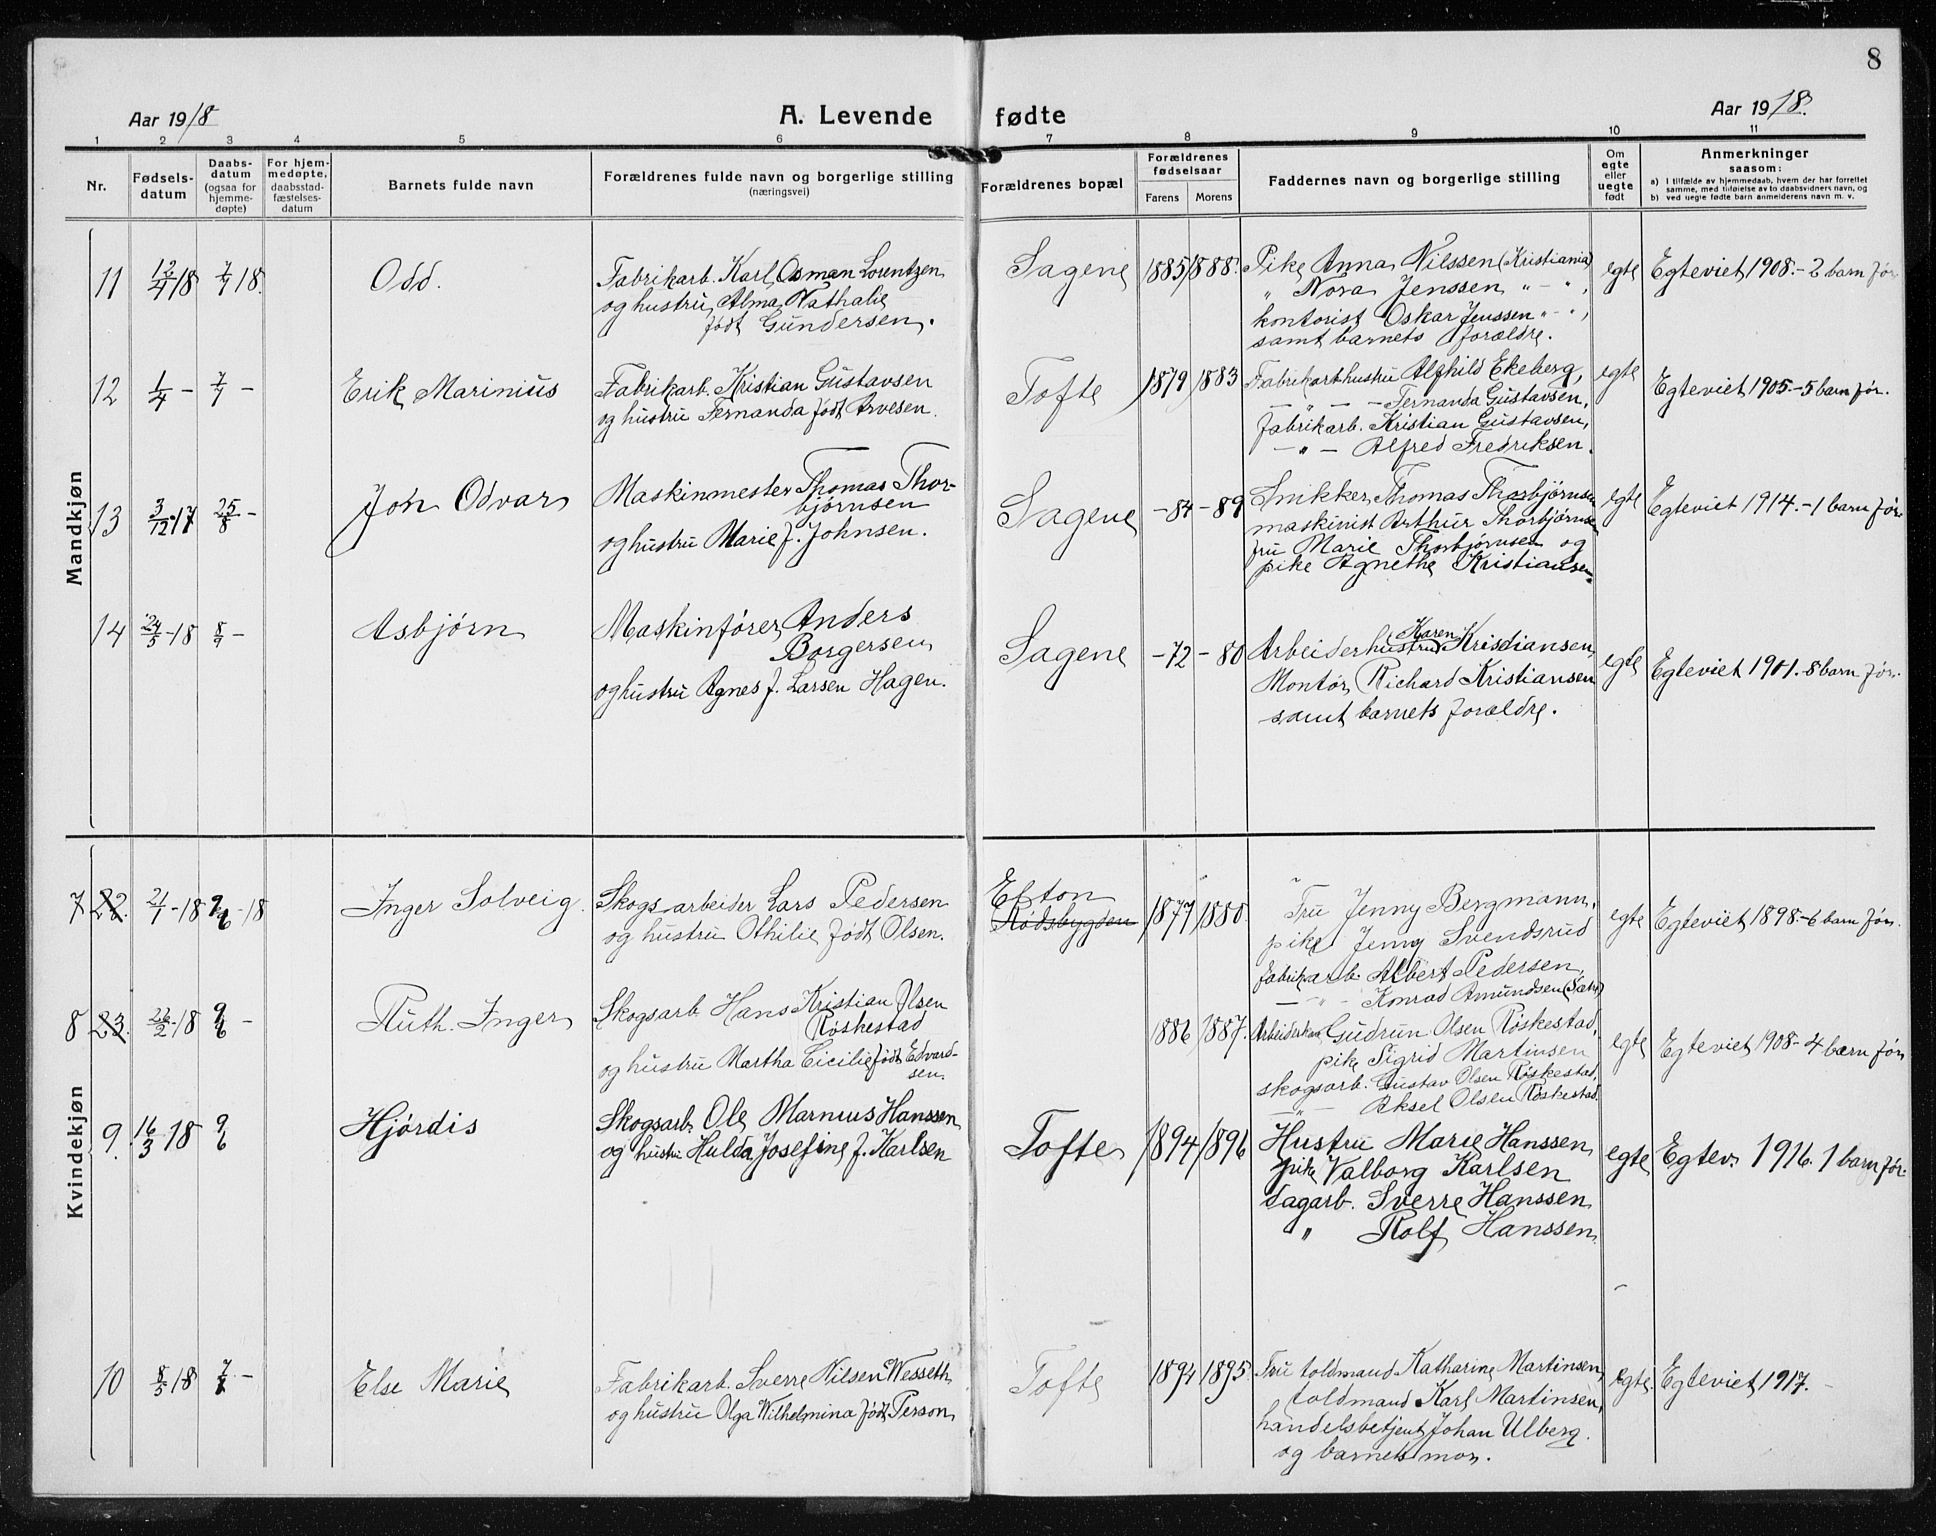 8
Aar 1918
A. Levende fødte
Aar 1918.
1 2 3 4 5 6 7 8 9 10 11
Nr.
Fødselsdatum
Daabsdatum (ogsaa for hjemmedøpte)
For hjemmedøpte, daabsstadfæstelsesdatum
Barnets fulde navn
Forældrenes fulde navn og borgerlige stilling (næringsvei)
Forældrenes bopæl
Forældrenes fødselsaar
Farens Morens
Faddernes navn og borgerlige stilling
Om egte eller uegte født
Anmerkninger saasom:
a) I tilfælde av hjemmedaab, hvem der har forrettet samme, med tilføielse av to daabsvidners navn, og
b) ved uegte fødte barn anmelderens navn m. v.
Mandkjøn
11 12/4 18 7/7 18. Odd.
Fabrikarb. Karl Osman Lorentzen
og hustru Alma Nathalie
født Gundersen.
Sagene 1885 1888.
Pike Anna Nilssen (Kristiania)
" Nora Jenssen " - ",
kontorist Oskar Jenssen " - ",
samt barnets forældre.
egte Egteviet 1908. - 2 barn før.
12 1/4 - 7/7 - Erik Marinius
Fabrikarb. Kristian Gustavsen
og hustru Fernanda født Arvesen.
Tofte 1879 1883
Fabrikarb.hustru Alfhild Ekeberg,
- " - - Fernanda Gustavsen,
fabrikarb. Kristian Gustavsen,
- " - Alfred Fredriksen.
egte Egteviet 1905 - 5 barn før.
13 3/12 17 25/8 - Jon Odvar
Maskinmester Thomas Thorbjørnsen
og hustru Marie f. Johnsen.
Sagene - 84 - 89
Snikker Thomas Thorbjørnsen
maskinist Arthur Thorbjørnsen
fru Marie Thorbjørnsen og
pike Agnethe Kristiansen.
egte Egteviet 1914. - 1 barn før.
14 24/5 - 18 8/9 - Asbjørn
Maskinfører Anders
Borgersen
og hustru Agnes f. Larsen Hagen.
Sagene - 72 - 80
Arbeiderhustru Karen Kristiansen,
Montør Richard Kristiansen
samt barnets forældre.
egte Egteviet 1901. - 8 barn før.
Kvindekjøn
7 22. 2/1 - 18 9/6 - 18 Inger Solveig.
Skogsarbeider Lars Pedersen
og hustru Othilie født Olsen.
Rødsbygden 1877 1880.
Fru Jenny Bergmann,
pike Jenny Svendsrud
fabrikarb. Albert Pedersen,
- " - Konrad Amundsen (Sætre)
egte Egteviet 1898. - 6 barn før.
8 23. 26/2 - 18 9/6 - Ruth. Inger
Skogsarb. Hans Kristian Olsen
Røskestad
og hustru Martha Cicilie født Edvardsen.
1886 1887.
Gudrun Olsen Røskestad,
pike Sigrid Martinsen
skogsarb. Gustav Olsen Røskestad,
- " - Aksel Olsen Røskestad.
egte Egteviet 1908 - 4 barn før
9. 16/3 18 9/6 Hjørdis
Skogsarb. Ole Marnius Hanssen
og hustru Hulda Josefine f. Karlsen
Tofte 1894 1896
Hustru Marie Hanssen
pike Valborg Karlsen
dagarb. Sverre Hanssen
" Rolf Hanssen
egte Egtev. 1916. 1 barn før.
10 8/5 18 7/7 - Else Marie
Fabrikarb. Sverre Nilsen Wesseth
og hustru Olga Wilhelmina født Person
Tofte 1894 1895.
Fru toldmand Katharine Martinsen,
toldmand Karl Martinsen,
handelsbetjent Johan Ulberg.
og barnets mor.
egte Egteviet 1917. -